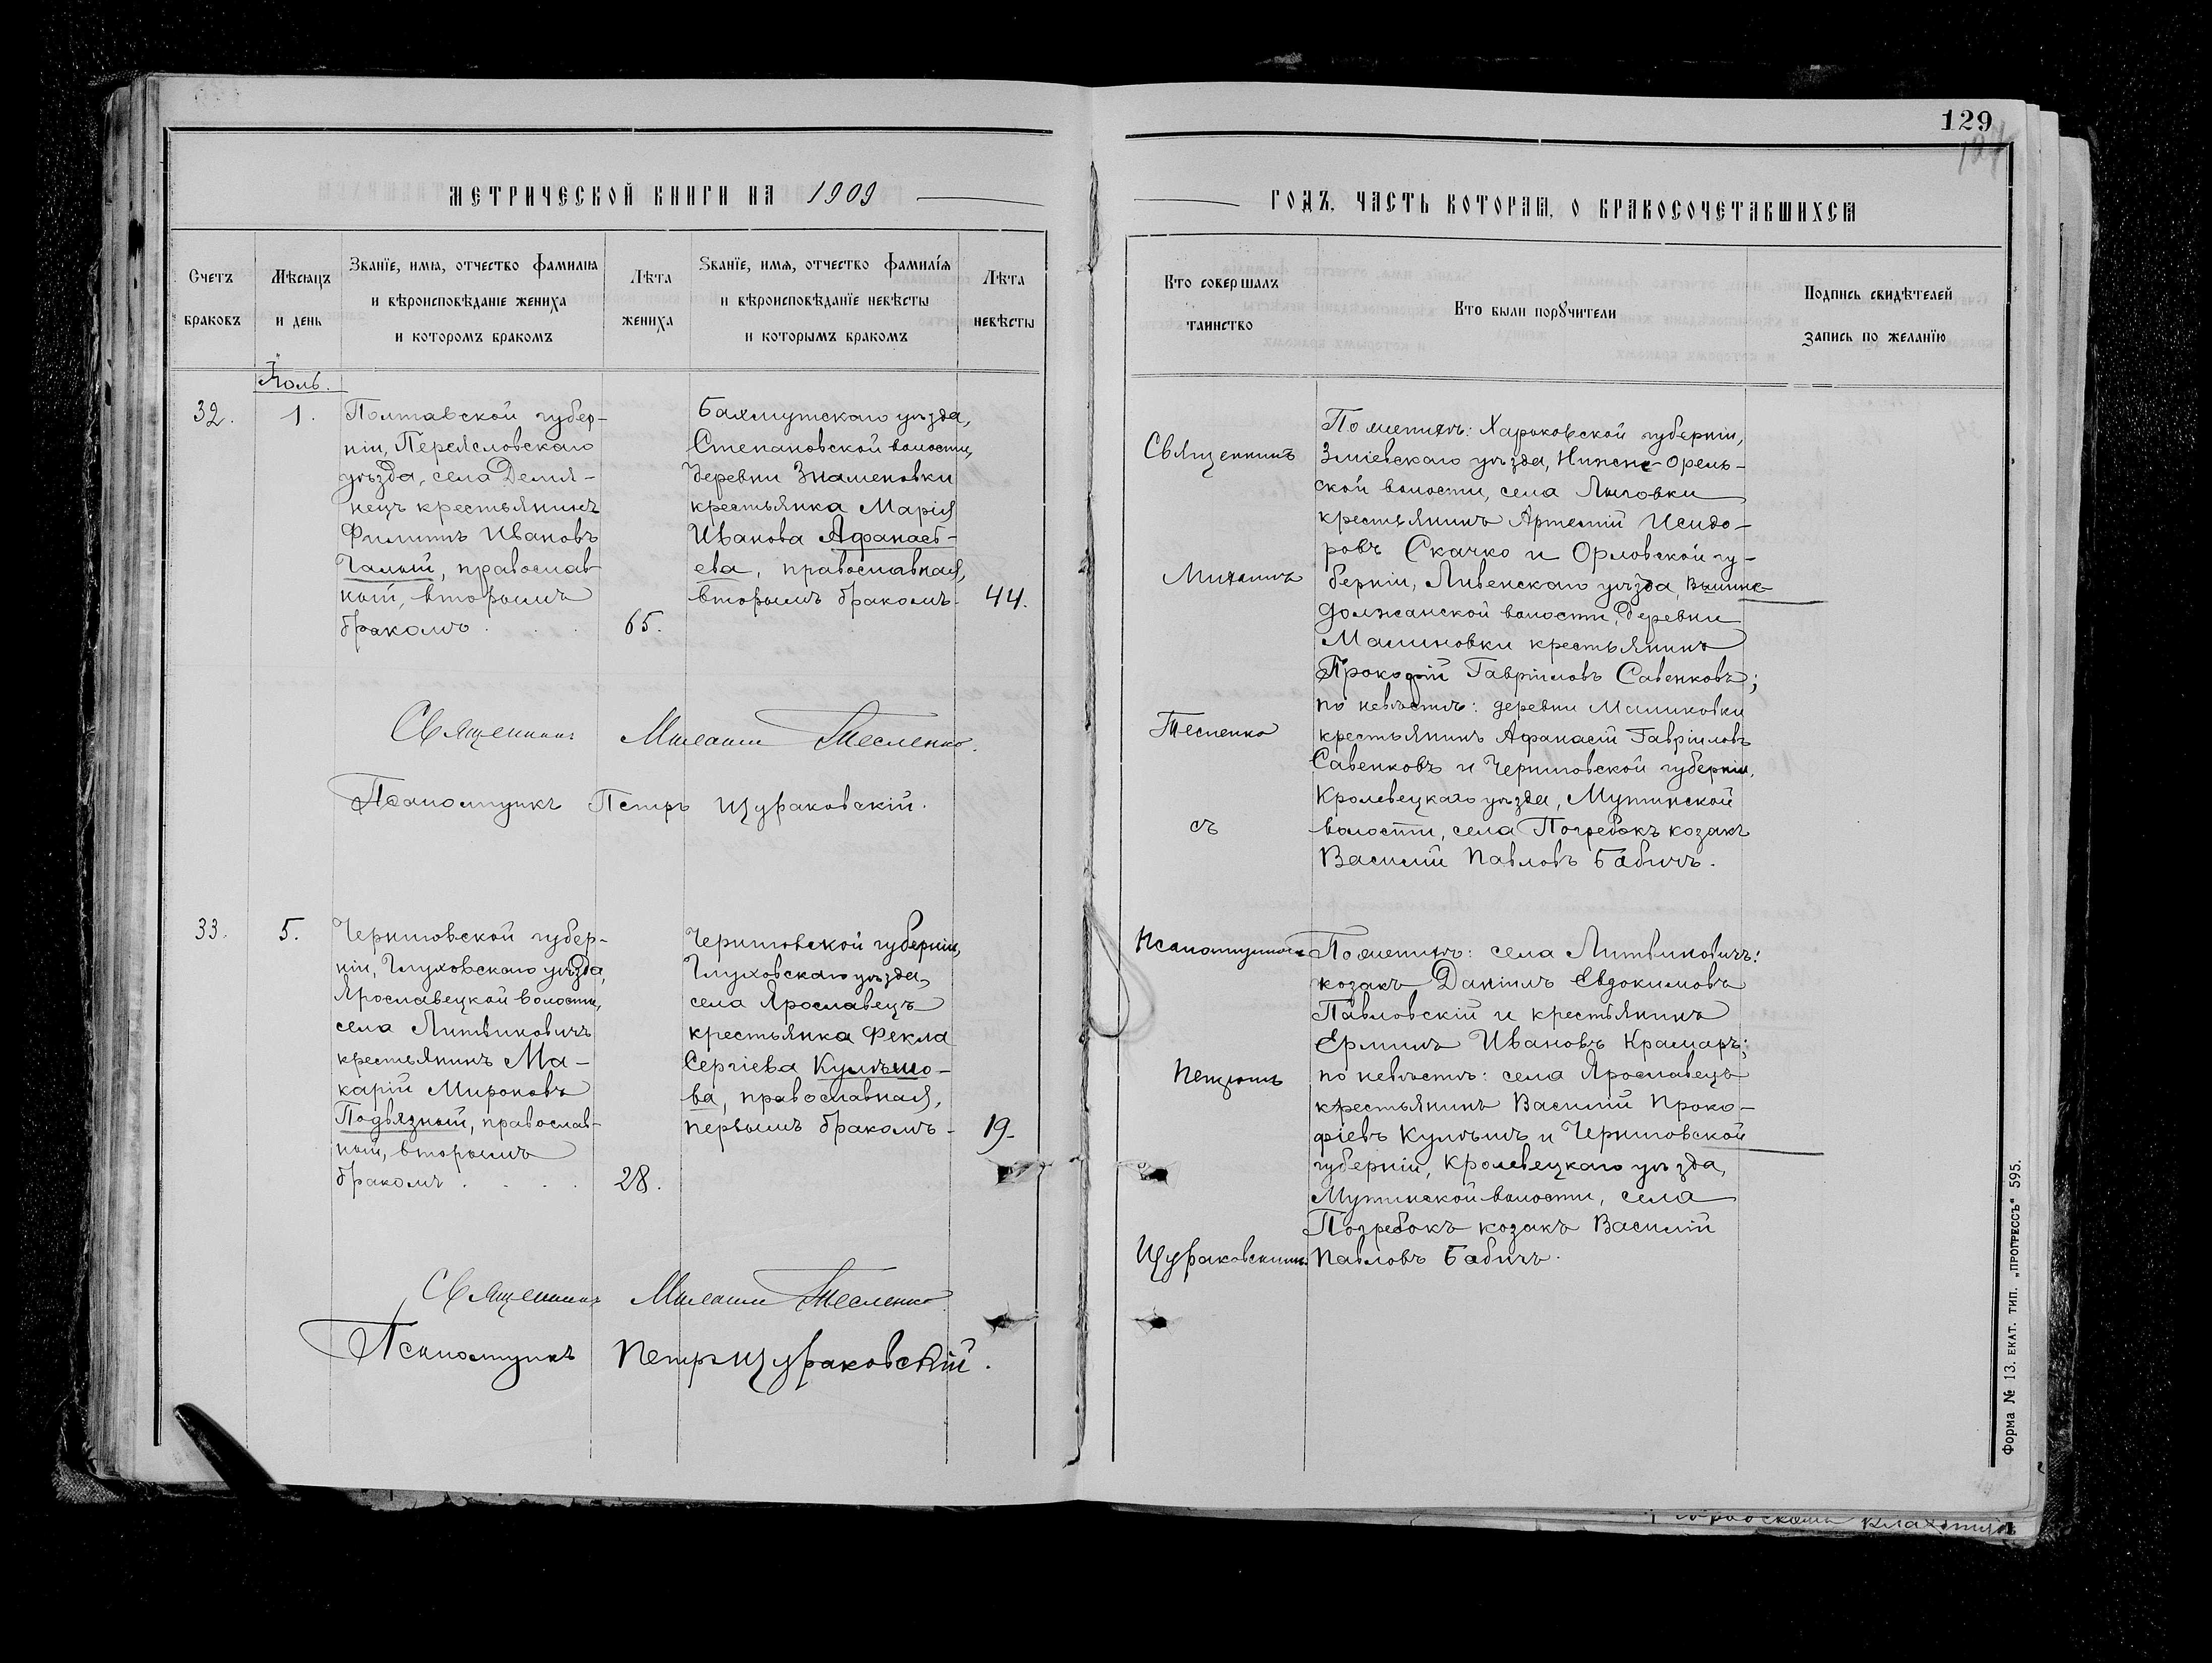 129
МЕТРИЧЕСКОЙ КНИГИ НА 1909
ГОДЪ, ЧАСТЬ ВТОРАЯ, О БРАКОСОЧЕТАВШИХСЯ
Счетъ
браковъ
Мѣсяцъ
и день
Званїе, имя, отчество фамилія
и вѣроисповѣданіе жениха
и которомъ бракомъ
Лѣта
жениха
Званїе, имя, отчество фамилїя
и вѣроисповѣданїе невѣсты
и которымъ бракомъ
Лѣта
невѣсты
Кто совершалъ
таинство
Кто были порꙋчители
Подпись свидѣтелей
запись по желанїю
Іюль.
32.
1.
Полтавской губер-
ніи, Переясловскаго
уѣзда, села Демя-
нецъ крестьянинъ
Филиппъ Ивановъ
Чалый, православ-
ный, вторымъ
бракомъ . . .
65.
Бахмутскаго уѣзда,
Степановской волости,
деревни Знаменовки
крестьянка Марія
Иванова Афанась-
ева, православная,
вторымъ бракомъ.
44.
Священникъ Михаилъ Тесленко.
Псаломщикъ Петръ Щураковскій.
33.
5.
Черниговской губер-
ніи, Глуховскаго уѣзда,
Ярославецкой волости,
села Литвиновичъ
крестьянинъ Ма-
карій Мироновъ
Подвязный, православ-
ный, вторымъ
бракомъ . . . .
28.
Черниговской губерніи,
Глуховскаго уѣзда,
села Ярославецъ
крестьянка Фекла
Сергіева Кулѣшо-
ва, православная,
первымъ бракомъ -
19.
Священникъ Михаилъ Тесленко
Псаломщикъ Петръ Щураковскій.
Священникъ
Михаилъ
Тесленко
съ
Псаломщикомъ
Петромъ
Щураковскимъ
По женихѣ: Харьковской губерніи,
Зміевскаго уѣзда, Нижне-Орель-
ской волости, села Лиговки
крестьянинъ Артемій Исидо-
ровъ Скачко и Орловской гу-
берніи, Ливенскаго уѣзда, Вышне-
должанской волости, деревни
Малиновки крестьянинъ
Прокофій Гавріиловъ Савенковъ;
по невѣстѣ: деревни Малиновки
крестьянинъ Афанасій Гавріиловъ
Савенковъ и Черниговской губерніи,
Кролевецкаго уѣзда, Мутинской
волости, села Погребокъ козакъ
Василій Павловъ Бабичъ.
По женихѣ: села Литвиновичъ:
козакъ Даніилъ Евдокимовъ
Павловскій и крестьянинъ
Ермилъ Ивановъ Крамаръ;
по невѣстѣ: села Ярославецъ
крестьянинъ Василій Проко-
фіевъ Кулѣшъ и Черниговской
губерніи, Кролевецкаго уѣзда,
Мутинской волости, села
Погребокъ козакъ Василій
Павловъ Бабичъ.
Форма № 13. ЕКАТ. ТИП. „ПРОГРЕССЪ" 595.